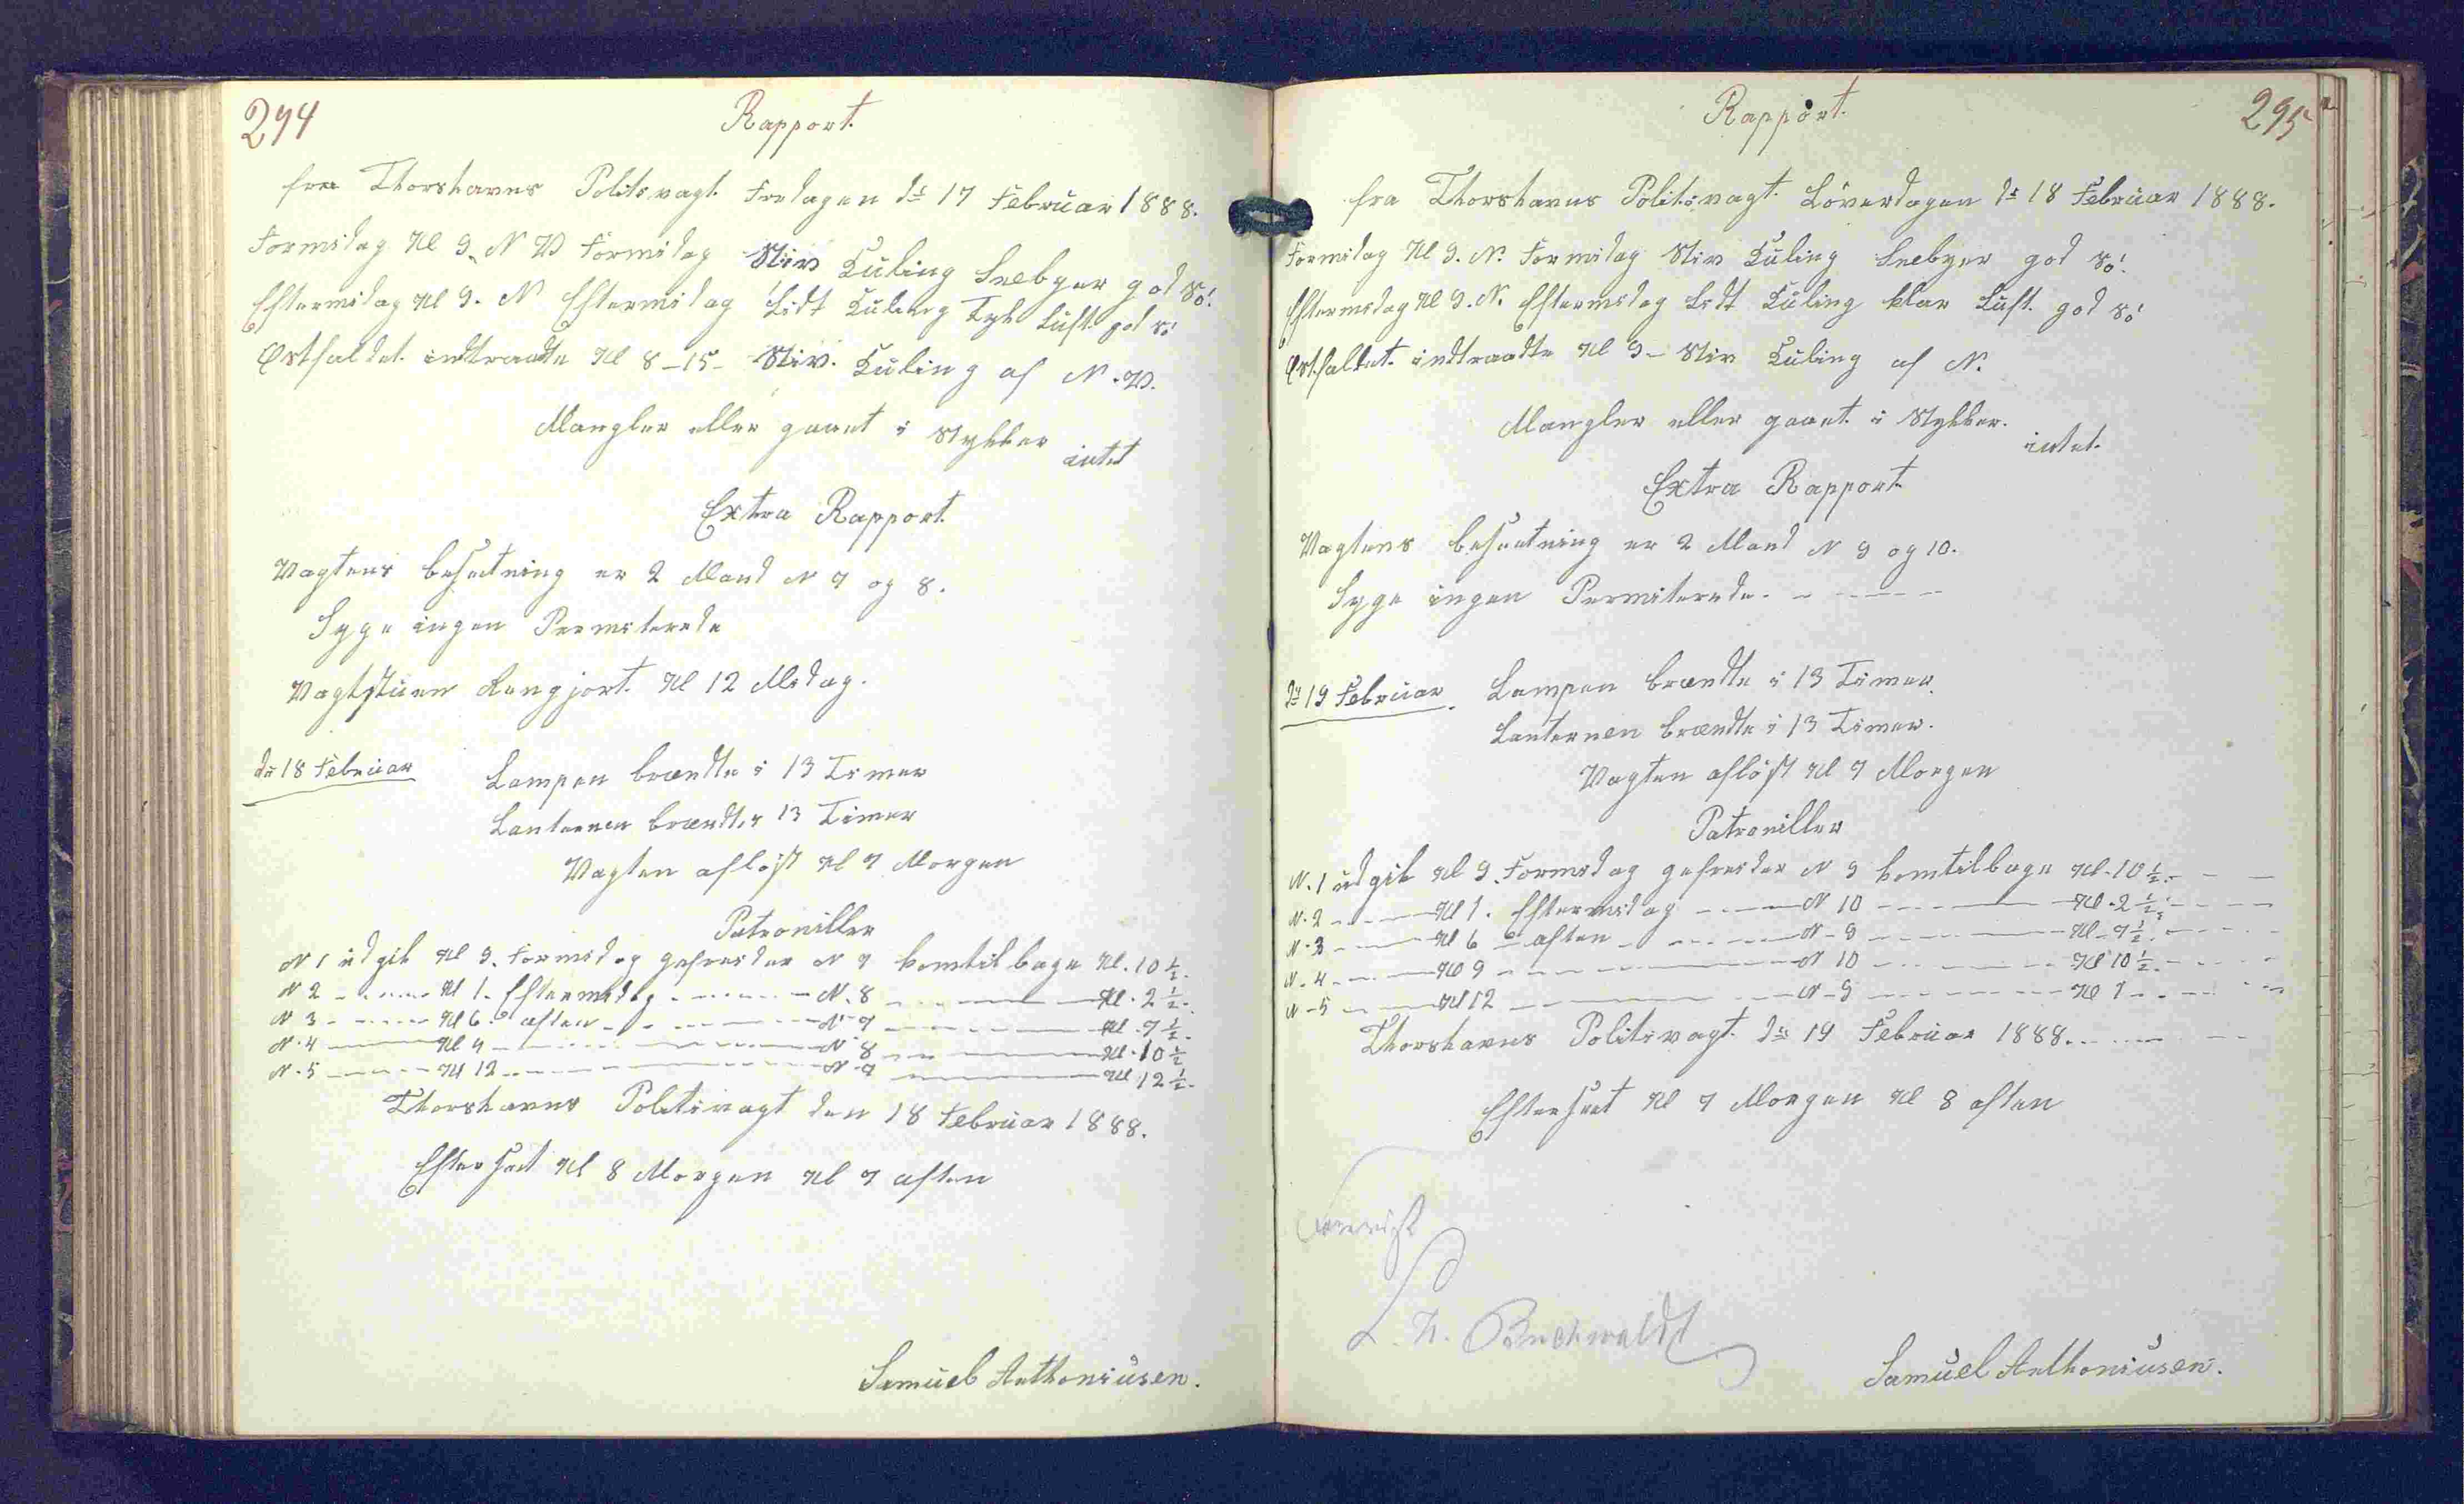 294
Rapport.
fra Thorshavns Politivagt. Fredagen ds 17 Februar 1888.
Formidag Kl 9. N V Formidag Stiv Kuling Snebyer god Sö.
Eftermidag Kl 9. N Eftermidag Lidt Kuling Tyk Luft. god Sö
Østfaldet indtraadte Kl 8-15- Stiv. Kuling af N.V.
Mangler eller gaaet i Stykker
intet
Extra Rapport.
Vagtens besætning er 2 Mand N 7 og 8.
Syge ingen Permiterede
Vagtstuen Rengjort. Kl 12 Midag.
dn 18 Februar
Lampen brændte i 13 Timer
Lanternen brændte i 13 Timer
Vagten aflöst Kl 7 Morgen
Patroniller
N 1 udgik Kl 9. Formidag gefreider N 7 komtilbage Kl. 10 1/2.
N 2 - - - - Kl 1. Eftermidag - - - - N. 8 - - - - Kl. 2 1/2.
N 3 - - - - Kl 6. aften - - - - N 7 - - - - Kl. 7 1/2.
N. 4 - - - - Kl 9 - - - - N 8 - - - - Kl. 10 1/2
N. 5 - - - - Kl 12 - - - - N. 7 - - - - Kl 12 1/2.
Thorshavns Politivagt den 18 Februar 1888.
Efterset Kl 8 Morgen Kl 7 aften
Samuel Anthoniusen.
295
Rapport.
fra Thorshavns Politivagt. Löverdagen ds 18 Februar 1888.
Formidag Kl 9. N. Formidag Stiv Kuling Snebyer god Sö.
Eftermidag Kl 9. N. Eftermidag Lidt Kuling klar Luft. god Sö
Østfaldet. indtraadte Kl 9- Stiv Kuling af N.
Mangler eller gaaet. i Stykker.
intet.
Extra Rapport
Vagtens besætning er 2 Mand N 9 og 10.
Syge ingen Permiterede. - - - -
dn 19 Februar.
Lampen brændte i 13 Timer.
Lanternen brændte i 13 Timer.
Vagten aflöst Kl 7 Morgen
Patroniller
N. 1 udgik Kl 9. Formidag gefreider N 9 komtilbage Kl. 10 1/2. - -
N. 2 - - - - Kl 1. Eftermidag - - - - N 10 - - - - Kl. 2 1/2. - - -
N. 3 - - - - Kl 6 aften - - - - N - 9 - - - - Kl - 7 1/2. - - -
N. 4 - - - - Kl 9 - - - - N 10 - - - - Kl 10 1/2. - - -
N - 5 - - - - Kl 12 - - - - N - 9 - - - - Kl 1 - - - -
Thorshavns Politivagt. ds 19 Februar 1888. - - - -
Efterset Kl 7 Morgen Kl 8 aften
L. N. Buchwaldt
Samuel Anthoniusen.